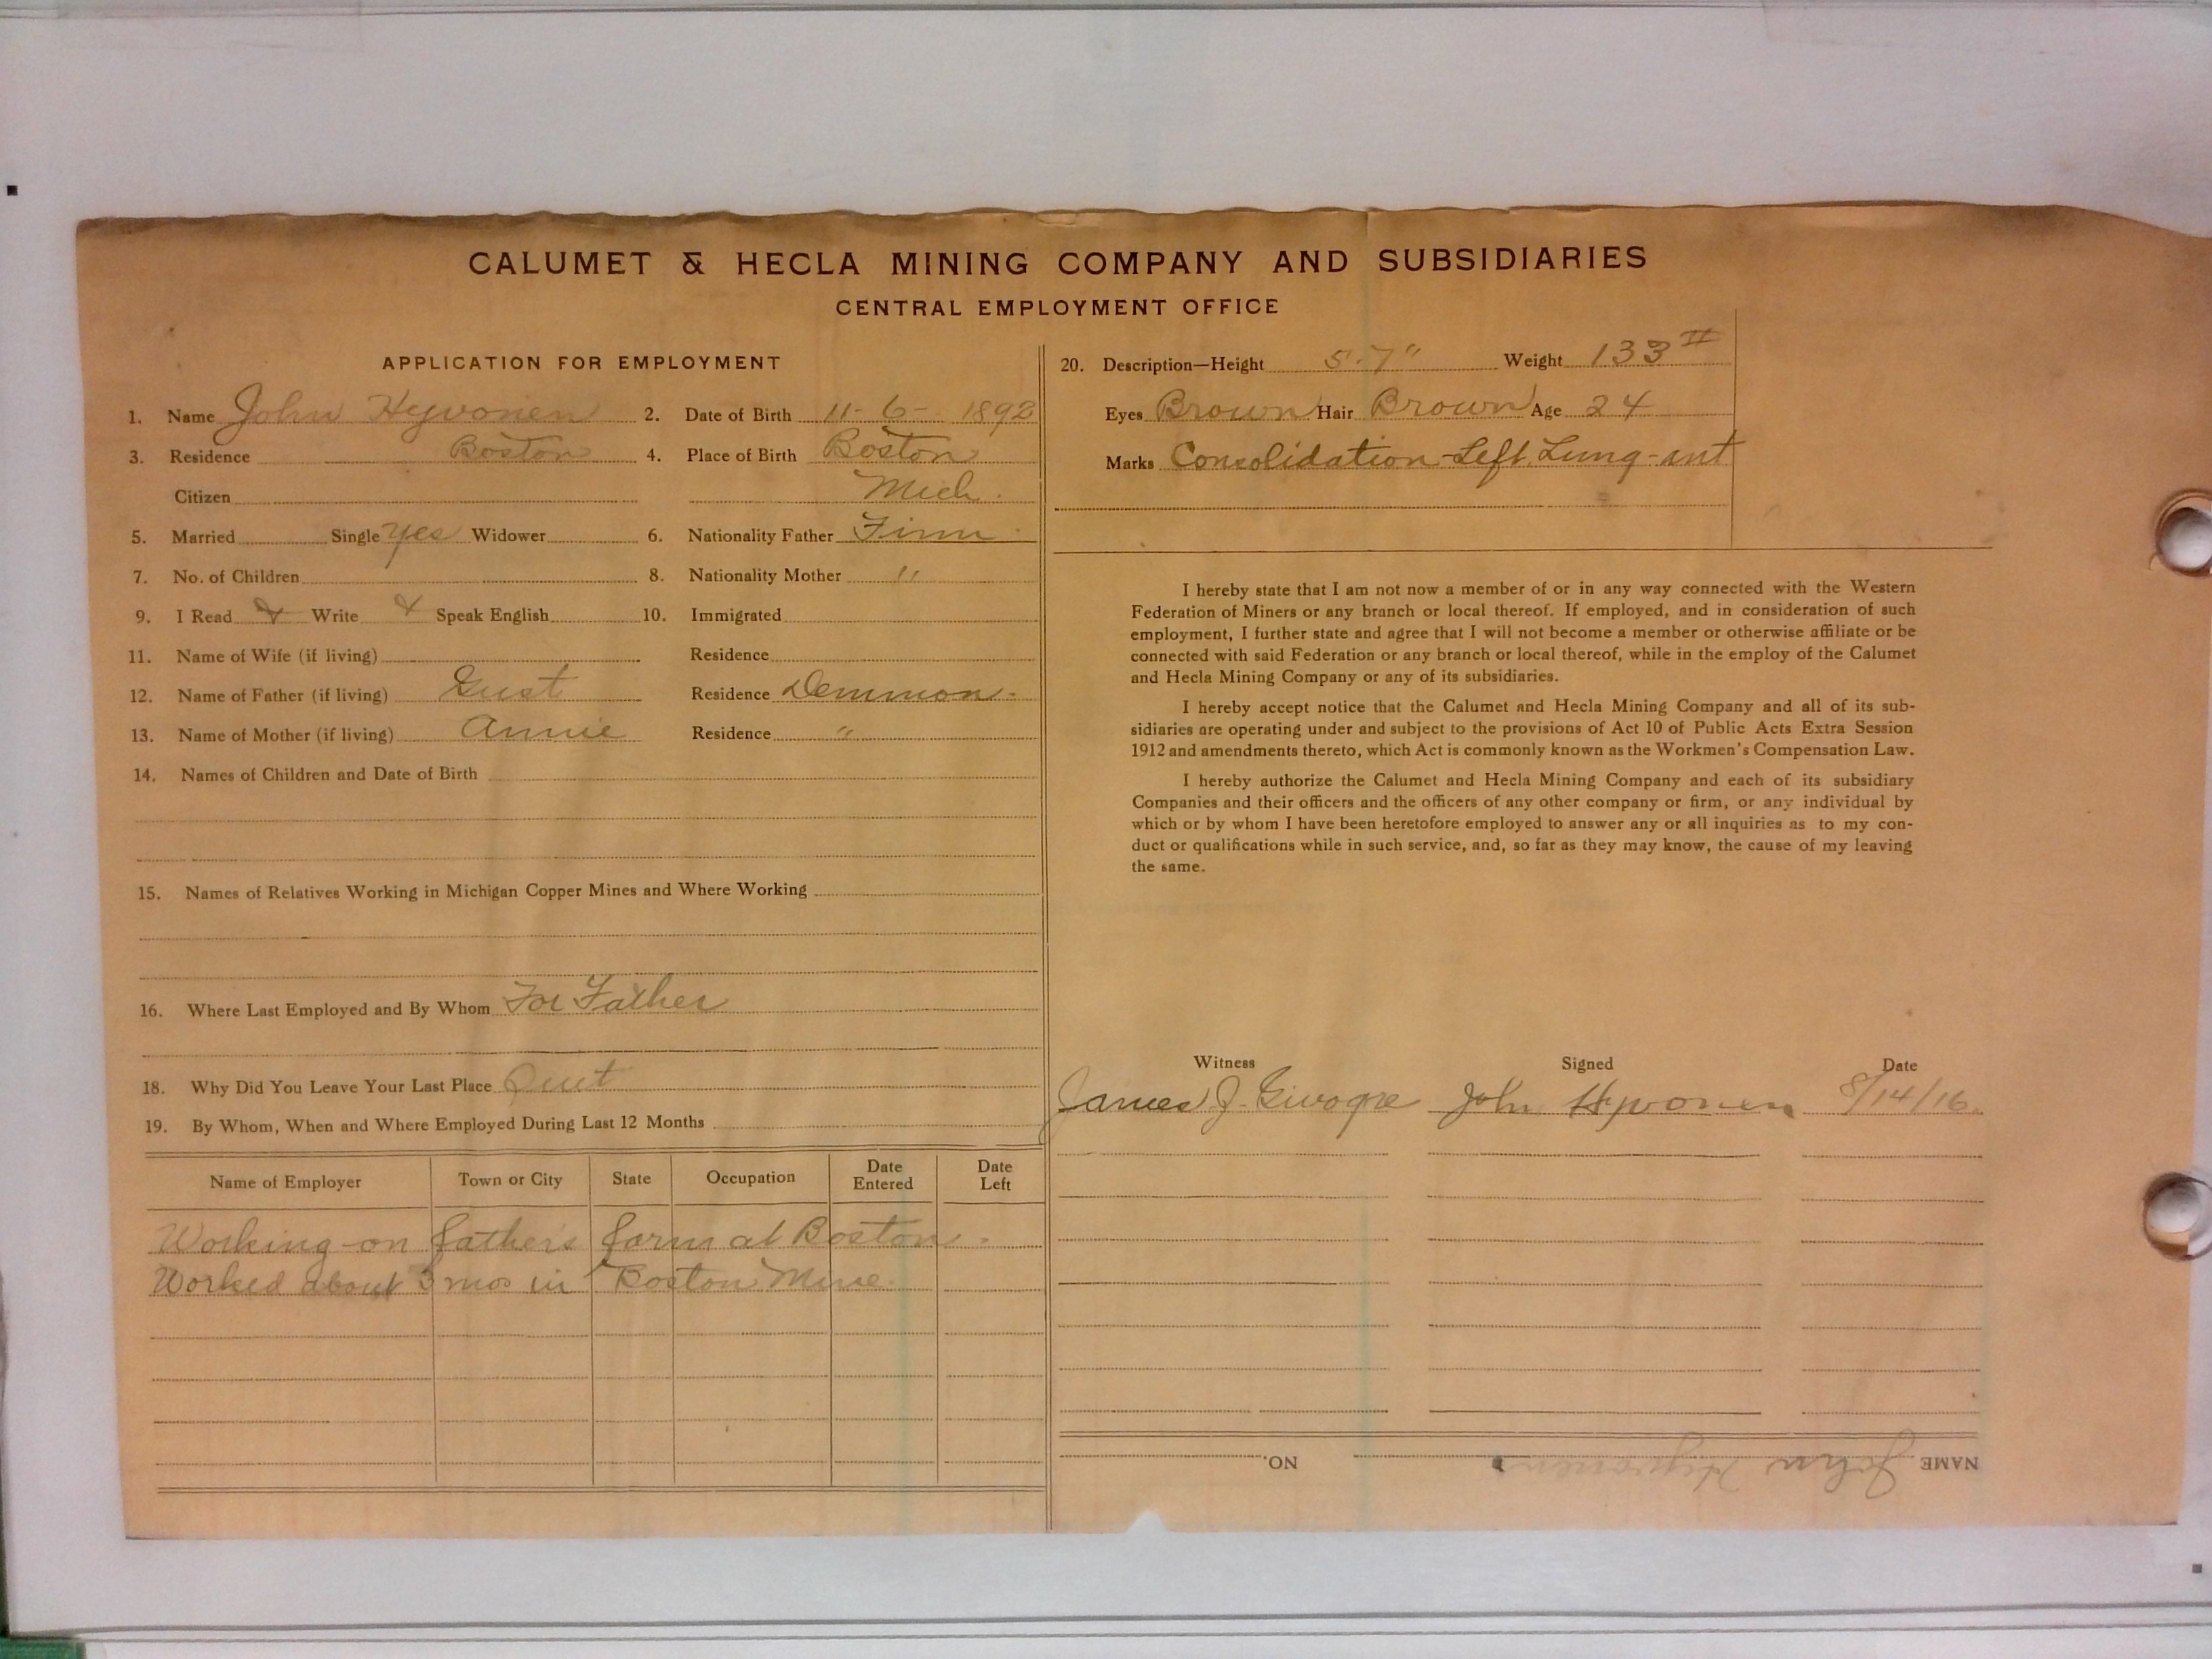 CALUMET & HECLA MINING COMPANY AND SUBSIDIARIES
CENTRAL EMPLOYMENT OFFICE
APPLICATION FOR EMPLOYMENT
1. Name John Hyvonen 2. Date of Birth 11-6- 1892
3. Residence Boston 4. Place of Birth Boston
Citizen Mich.
5. Married Single yes Widower 6. Nationality Father Finn
7. No. of Children 8. Nationality Mother "
9. I Read & Write & Speak English 10. Immigrated
11. Name of Wife (if living) Residence
12. Name of Father (if living) Gust Residence Demmon.
13. Name of Mother (if living) Annie Residence "
14. Names of Children and Date of Birth
15. Names of Relatives Working in Michigan Copper Mines and Where Working
16. Where Last Employed and By Whom For Father
18. Why Did You Leave Your Last Place Quit
19. By Whom, When and Where Employed During Last 12 Months
Name of Employer Town or City State Occupation Date Entered Date Left
Working on father's farm at Boston.
Worked about 3 mos in Boston Mine.
20. Description—Height 5-7" Weight 133 #
Eyes Brown Hair Brown Age 24
Marks Consolidation-Left Lung-ant
I hereby state that I am not now a member of or in any way connected with the Western
Federation of Miners or any branch or local thereof. If employed, and in consideration of such
employment, I further state and agree that I will not become a member or otherwise affiliate or be
connected with said Federation or any branch or local thereof, while in the employ of the Calumet
and Hecla Mining Company or any of its subsidiaries.
I hereby accept notice that the Calumet and Hecla Mining Company and all of its sub-
sidiaries are operating under and subject to the provisions of Act 10 of Public Acts Extra Session
1912 and amendments thereto, which Act is commonly known as the Workmen's Compensation Law.
I hereby authorize the Calumet and Hecla Mining Company and each of its subsidiary
Companies and their officers and the officers of any other company or firm, or any individual by
which or by whom I have been heretofore employed to answer any or all inquiries as to my con-
duct or qualifications while in such service, and, so far as they may know, the cause of my leaving
the same.
Witness Signed Date
James J. John Hyvonen 8/14/16.
NAME John Hyvonen NO.